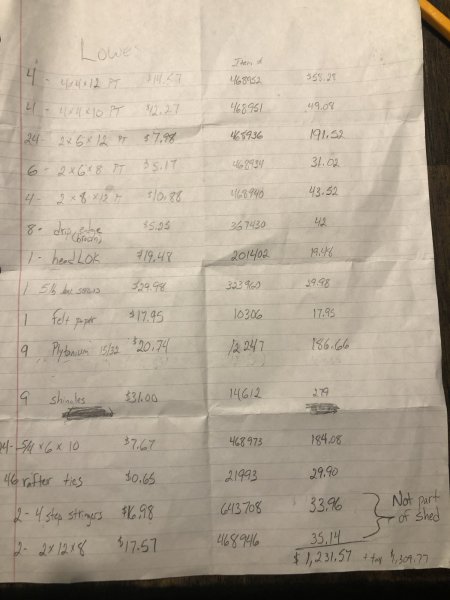 Lowes
Item #
4 - 4x4x12 PT $14.57 468952 $58.28
4 - 4x4x10 PT $12.27 468951 49.08
24- 2x6x12 PT $7.98 468936 191.52
6 - 2x6x8 PT $5.17 468934 31.02
4 - 2x8x12 PT $10.88 468940 43.52
8 - drip edge (brown) $5.25 367430 42
1 - headLOK $19.48 201402 19.48
1 5lb screws $29.98 323960 29.98
1 felt paper $17.95 10306 17.95
9 Plytanium 15/32 $20.74 12247 186.66
9 shingles $31.00 14612 279
24- 5/4x6x10 $7.67 468973 184.08
46 rafter ties $0.65 21993 29.90
2 - 4 step stringers $16.98 643708 33.96
2- 2x12x8 $17.57 468946 35.14
Not part of shed
$1,231.57 + tax 1,309.77